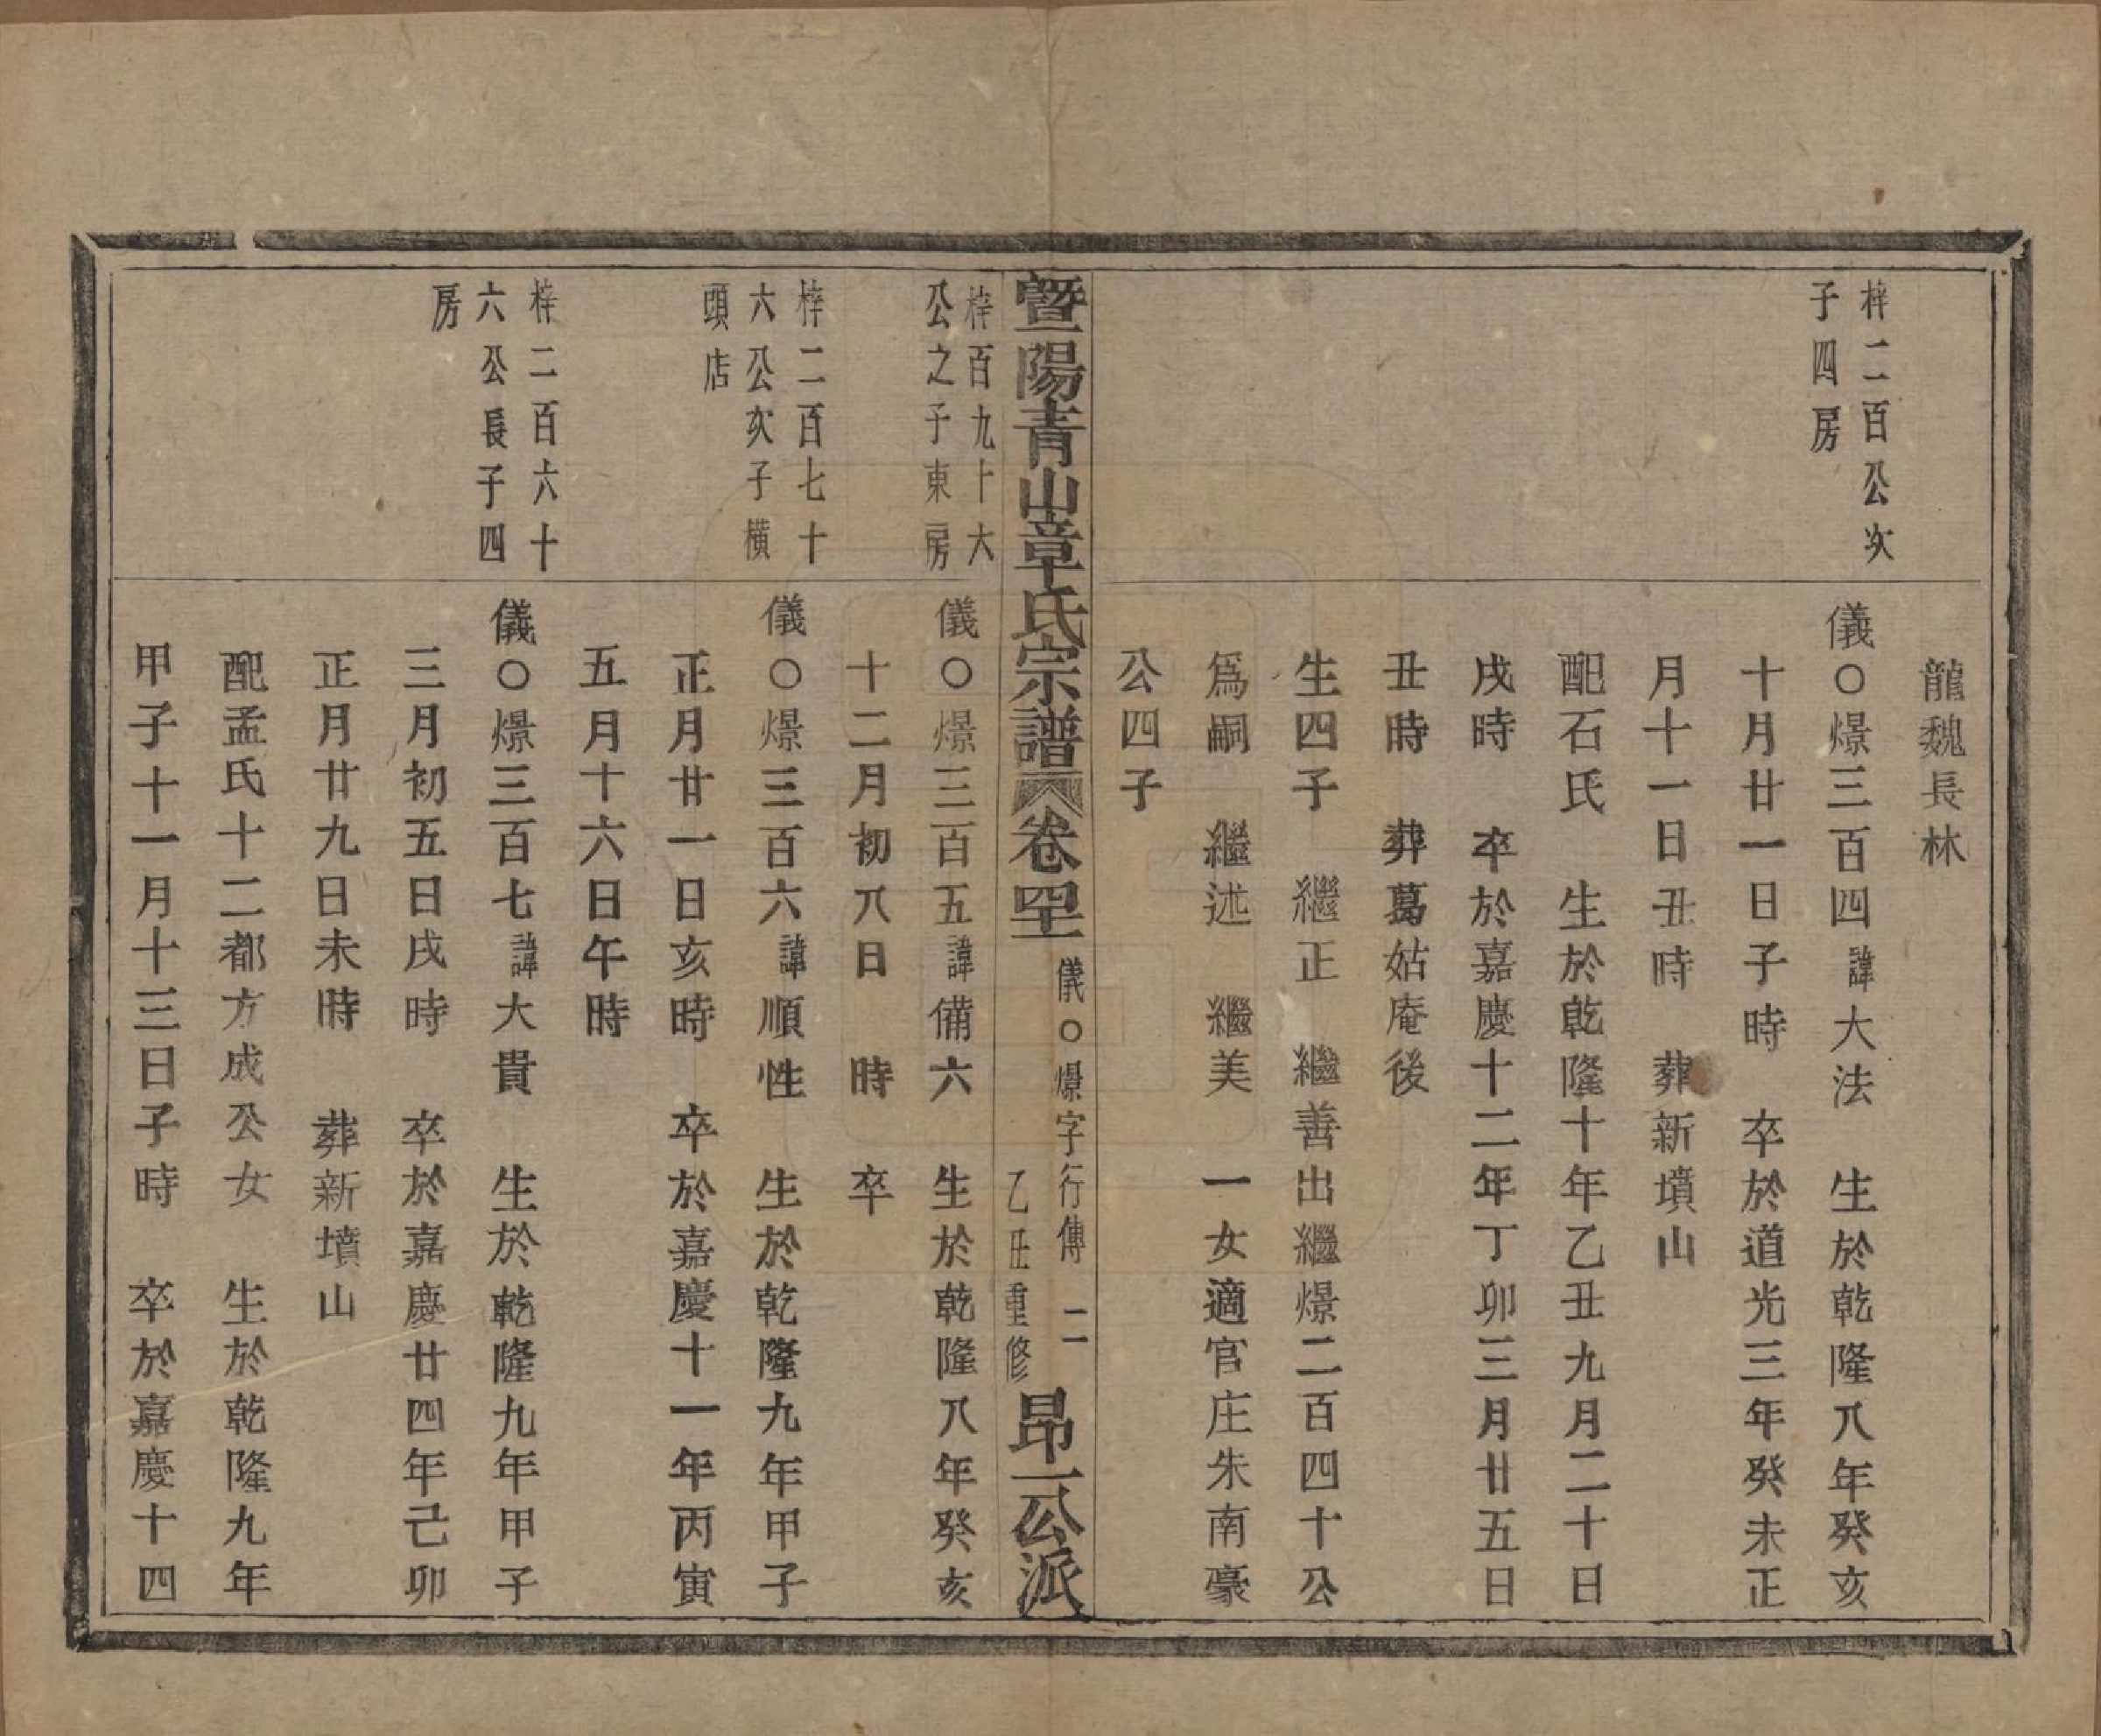 龍魏長林
梓二百公次
子四房
儀○㬌三百四諱大法　生於乾隆八年癸亥
十月廿一日子時　卒於道光三年癸未正
月十一日丑時　葬新墳山
配石氏　生於乾隆十年乙丑九月二十日
戌時　卒於嘉慶十二年丁卯三月廿五日
丑時　葬葛姑庵後
生四子　繼正　繼善出繼㬌二百四十公
爲嗣　繼述　繼美　一女適官庄朱南豪
公四子
暨陽青山章氏宗譜　卷四十一　儀○㬌字行傳　二　乙丑重修　昂一公派
梓百九十六
公之子東房
儀○㬌三百五諱備六　生於乾隆八年癸亥
十二月初八日　時　卒
梓二百七十
六公次子橫
頭店
儀○㬌三百六諱順性　生於乾隆九年甲子
正月廿一日亥時　卒於嘉慶十一年丙寅
五月十六日午時
梓二百六十
六公長子四
房
儀○㬌三百七諱大貴　生於乾隆九年甲子
三月初五日戌時　卒於嘉慶廿四年己卯
正月廿九日未時　葬新墳山
配孟氏十二都方成公女　生於乾隆九年
甲子十一月十三日子時　卒於嘉慶十四